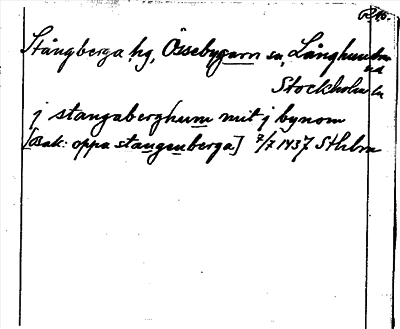 Stångberga, hg, Össebygarn sn, Långhundra
hd
Stockholms ln
j stangaberghum mit j bynom
[Bak: oppa stangenberga] 7/7 1437 Sthlm